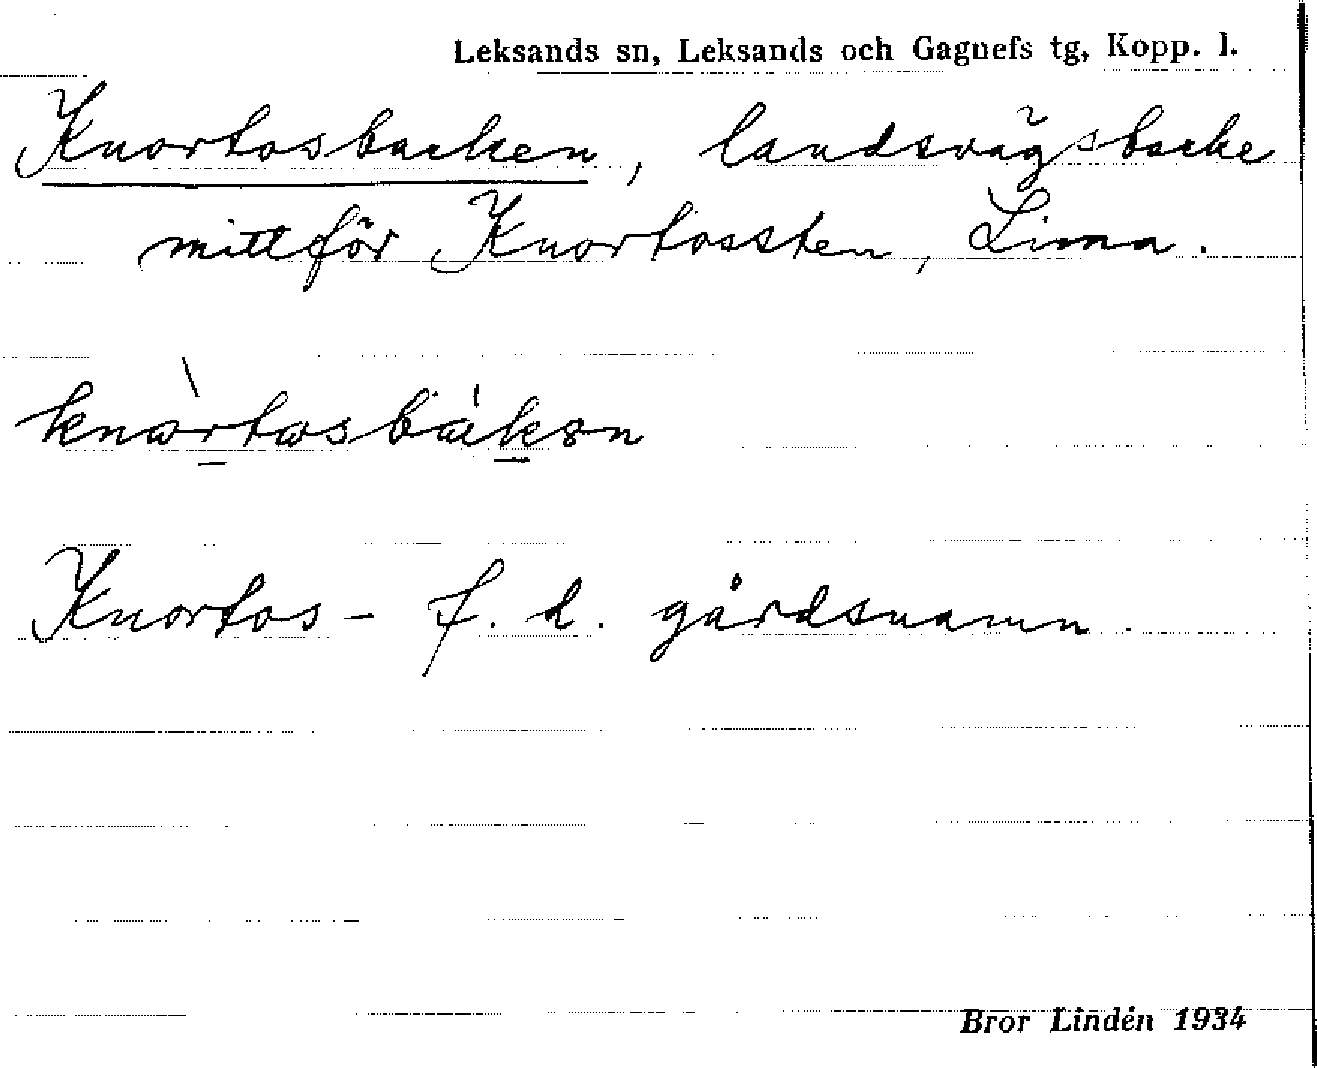 Leksands sn, Leksands och Gagnefs tg, Kopp. l.
Knortosbacken, landsvägsbacke
mittför Knortossten, Lima.
knòrtosbákən
Knortos - f. d. gårdsnamn.
Bror Lindén 1934